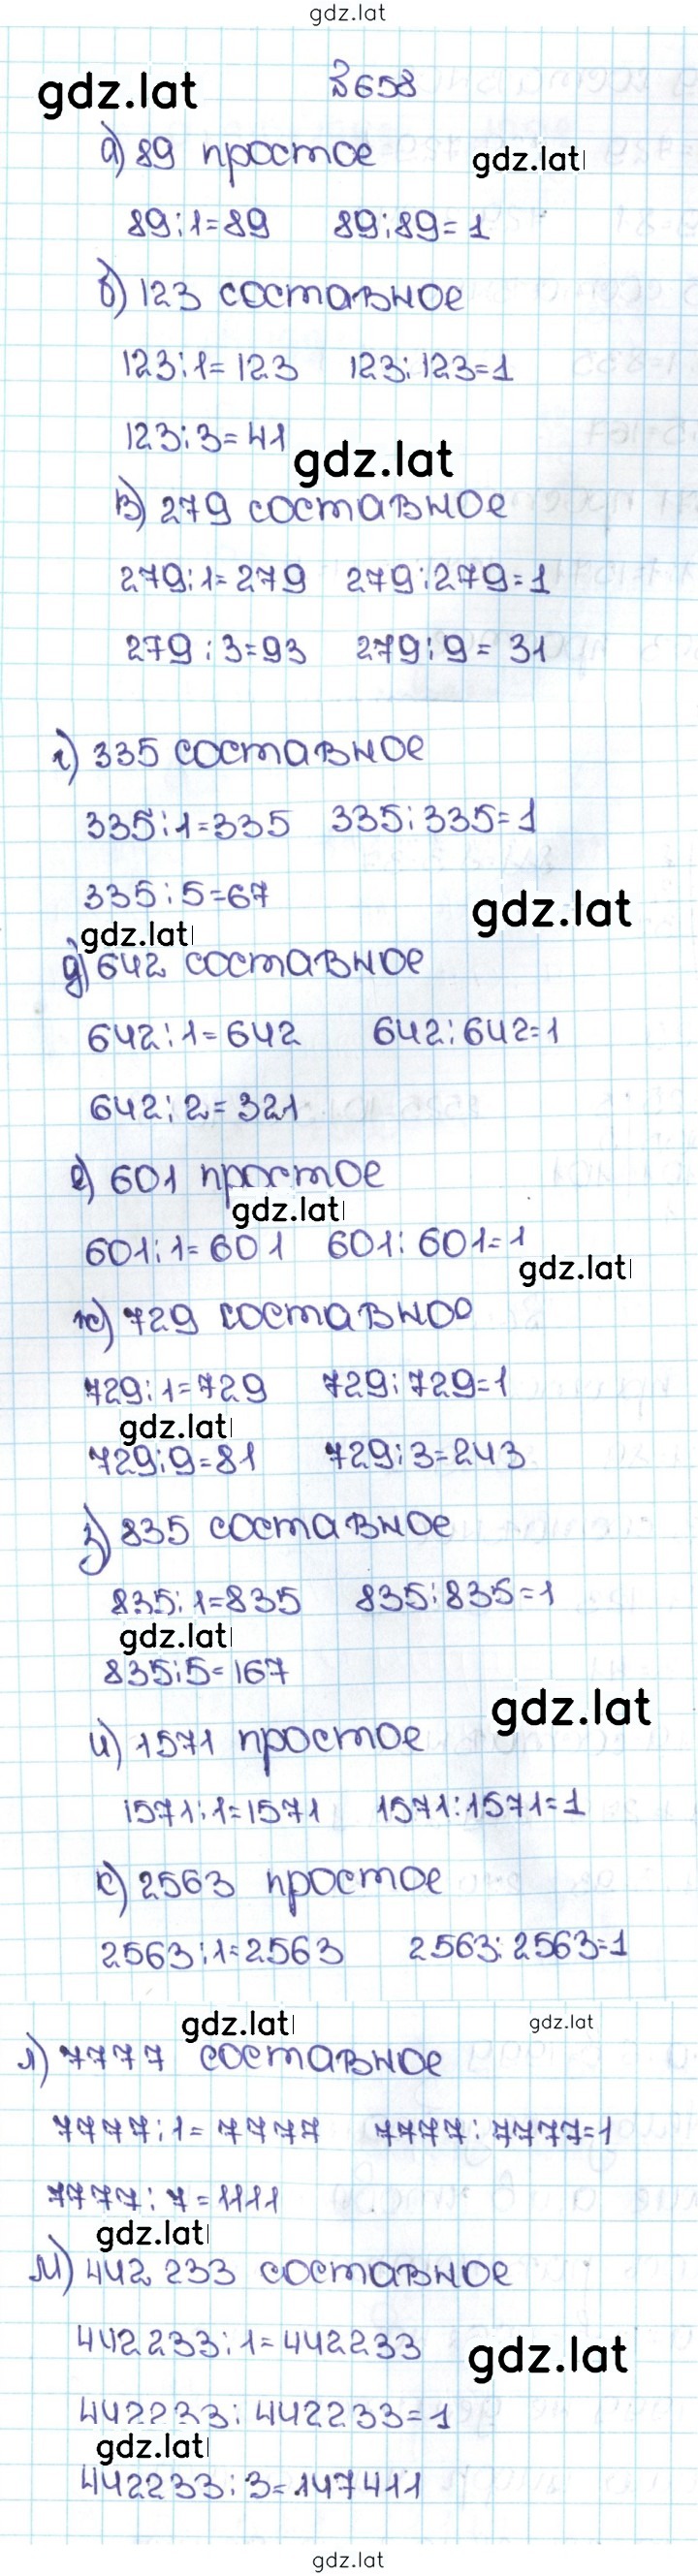 gdz.lat
gdz.lat
№658
а) 89 простое
gdz.lat
89:1=89 89:89=1
б) 123 составное
123:1=123 123:123=1
123:3=41
gdz.lat
в) 279 составное
279:1=279 279:279=1
279:3=93 279:9=31
г) 335 составное
335:1=335 335:335=1
335:5=67
gdz.lat
gdz.lat
д) 642 составное
642:1=642 642:642=1
642:2=321
е) 601 простое
gdz.lat
601:1=601 601:601=1
gdz.lat
ж) 729 составное
729:1=729 729:729=1
gdz.lat
729:9=81 729:3=243
з) 835 составное
835:1=835 835:835=1
gdz.lat
835:5=167
gdz.lat
и) 1571 простое
1571:1=1571 1571:1571=1
к) 2563 простое
2563:1=2563 2563:2563=1
gdz.lat
gdz.lat
л) 7777 составное
7777:1=7777 7777:7777=1
7777:7=1111
gdz.lat
м) 442 233 составное
442233:1=442233
gdz.lat
442233:442233=1
gdz.lat
442233:3=147411
gdz.lat